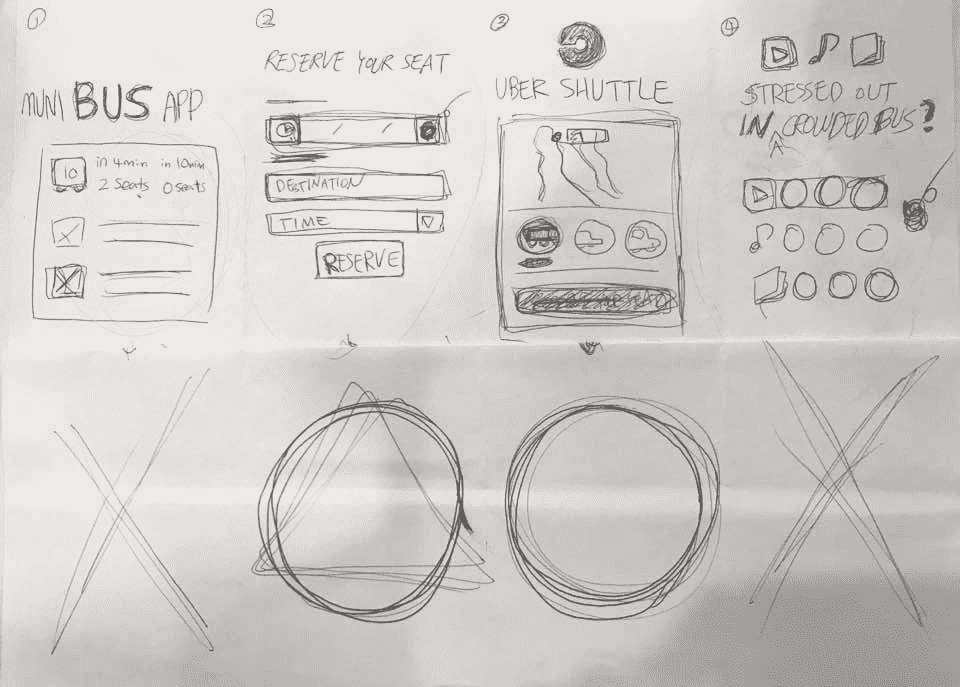 1
MUNI BUS APP
10
in 4min in 10min
2 Seats 0 seats
2
RESERVE YOUR SEAT
DESTINATION
TIME
RESERVE
3
UBER SHUTTLE
4
STRESSED OUT
IN CROWDED BUS?
A